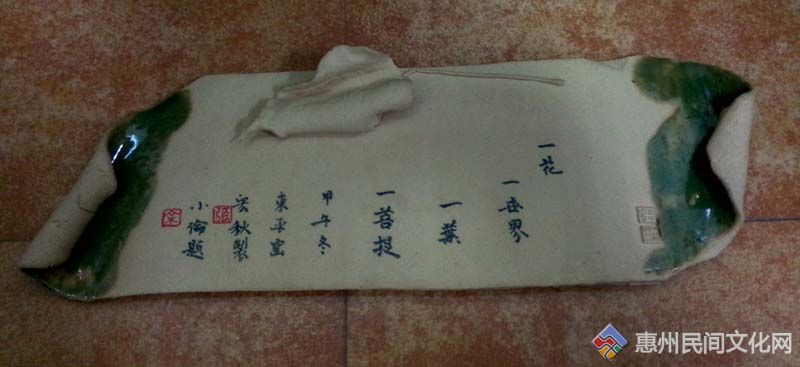 一花
一世界
一葉
一菩提
甲午冬
東平窑
宏秋製
小倫題
惠州民间文化网